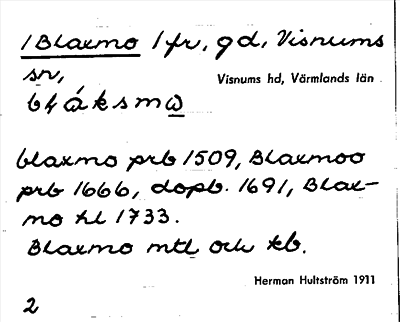 1 Blaxmo 1 fr, gd, Visnums
sn,
Visnums hd, Värmlands län
blåksmω
blaxmo prb 1509, Blaxmoo
prb 1666, dopb. 1691, Blax-
mo hl 1733.
Blaxmo mtl och kb.
Herman Hultström 1911
2